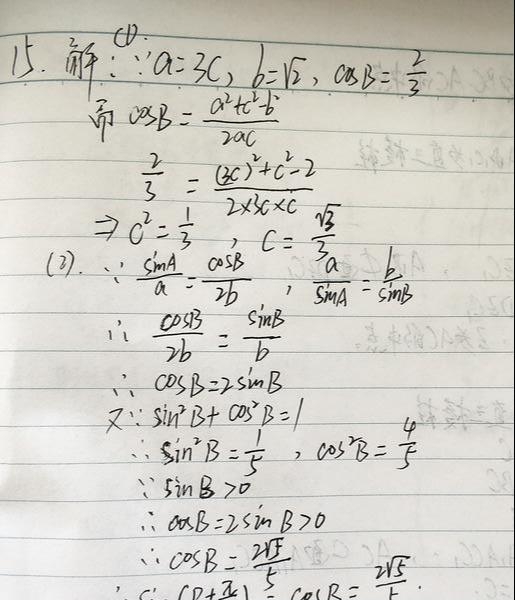 15. 解: (1) ∵ a=3c, b=√2, cosB=2/3
而 cosB = (a²+c²-b²)/(2ac)
2/3 = ((3c)²+c²-2)/(2×3c×c)
⇒ c²=1/3, c=√3/3
(2). ∵ sinA/a = cosB/2b, a/sinA = b/sinB
∴ cosB/2b = sinB/b
∴ cosB=2sinB
又∵ sin²B+cos²B=1
∴ sin²B=1/5, cos²B=4/5
∵ sinB>0
∴ cosB=2sinB>0
∴ cosB=2√5/5
∴ sin(B+π/2) = cosB = 2√5/5.